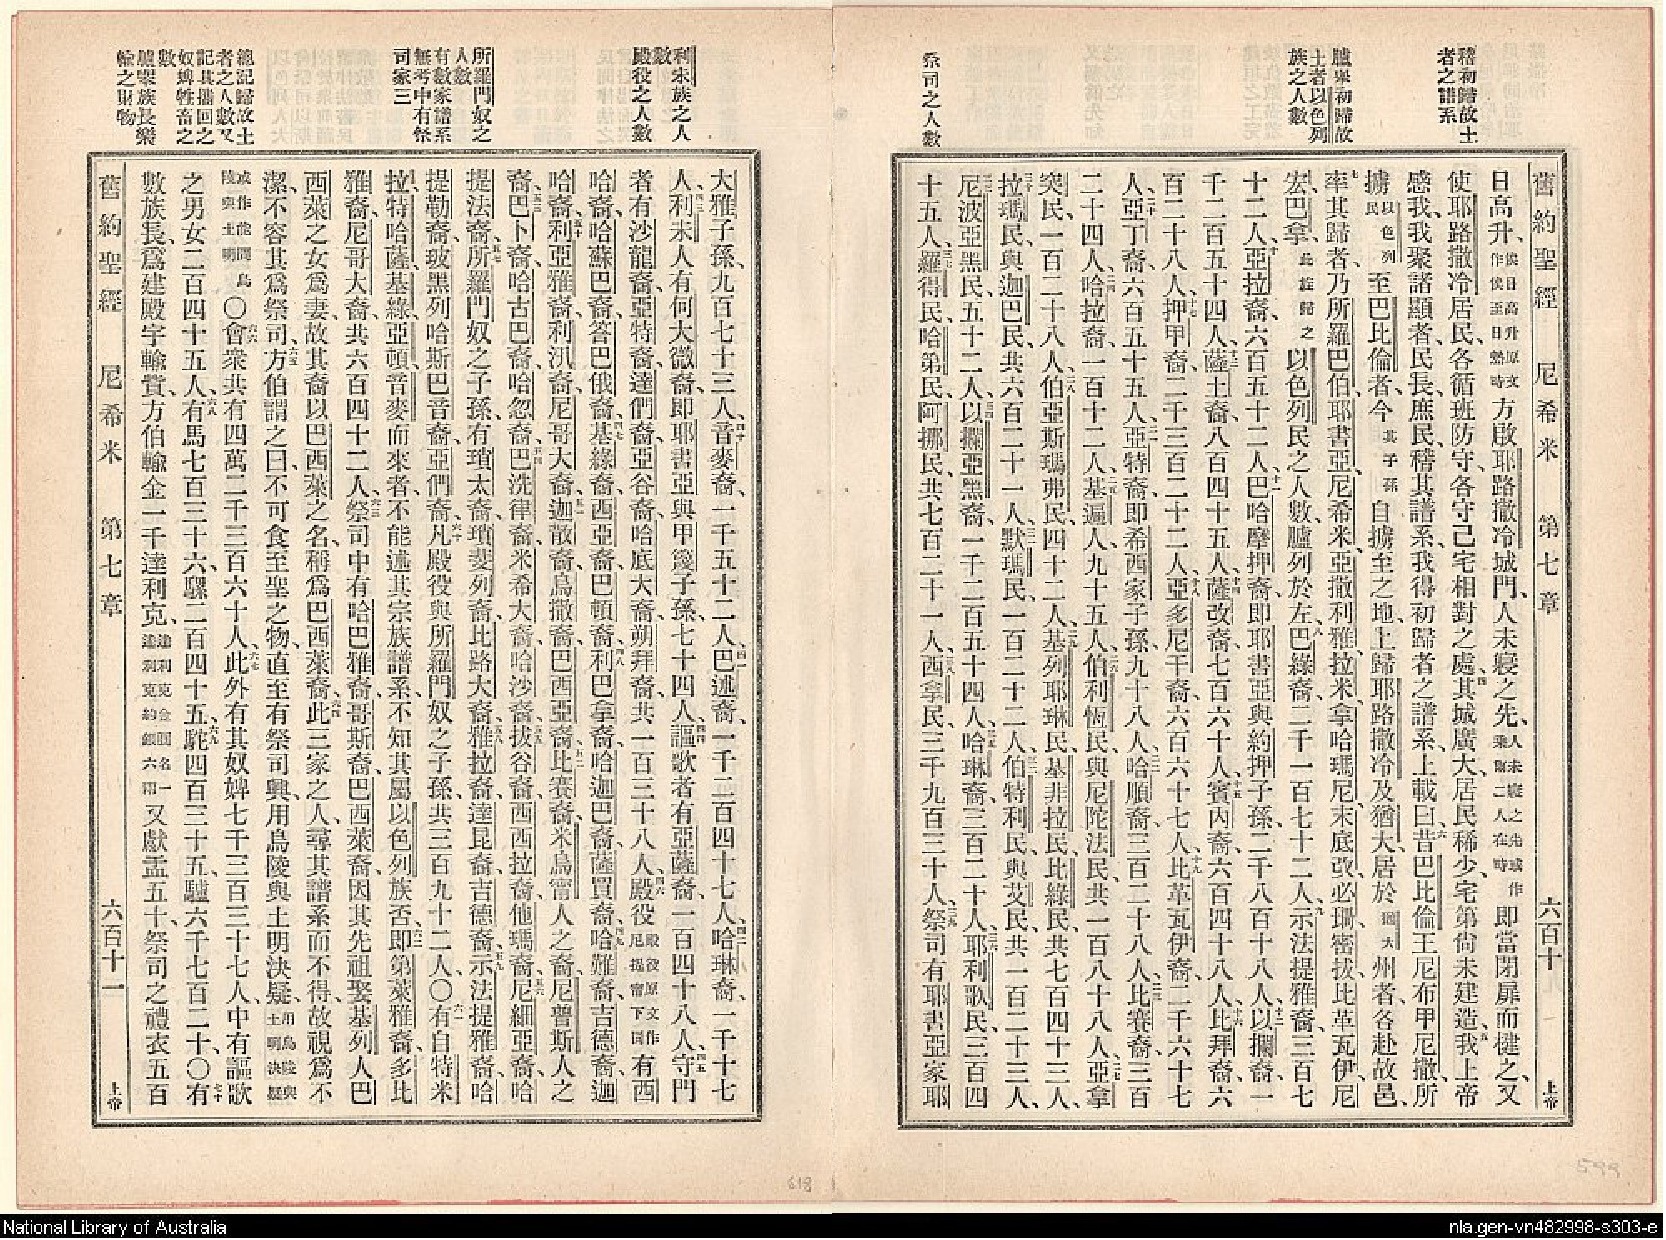 稽初歸故土
者之譜系
臚舉初歸故
土者以色列
族之人數
祭司之人數
舊約聖經 尼希米 第七章 六百十 上帝
日高升、俟日高升原文作俟至日熱時方啟耶路撒冷城門、人未寢之先、人未寢之先或作乘爾二人在時即當閉扉而楗之、又
使耶路撒冷居民、各循班防守、各守己宅相對之處、四其城廣大、居民稀少、宅第尙未建造、五我上帝
感我、我聚諸顯者、民長、庶民、稽其譜系、我得初歸者之譜系、上載曰、六昔巴比倫王尼布甲尼撒、所
擄以色列民至巴比倫者、今其子孫自擄至之地、上歸耶路撒冷及猶大、居於猶大州者、各赴故邑、
七率其歸者、乃所羅巴伯、耶書亞、尼希米、亞撒利雅、拉米、拿哈瑪尼、末底改、必珊、密拔、比革瓦伊、尼
宏、巴拿、以色列民之人數、臚列於左、八巴綠裔、二千一百七十二人、九示法提雅裔、三百七
十二人、十亞拉裔、六百五十二人、十一巴哈摩押裔、即耶書亞與約押子孫、二千八百十八人、十二以攔裔、一
千二百五十四人、十三薩土裔、八百四十五人、十四薩改裔、七百六十人、十五賓內裔、六百四十八人、十六比拜裔、六
百二十八人、十七押甲裔、二千三百二十二人、十八亞多尼干裔、六百六十七人、十九比革瓦伊裔、二千六十七
人、二十亞丁裔、六百五十五人、二一亞特裔、即希西家子孫、九十八人、二二哈順裔、三百二十八人、二三比賽裔、三百
二十四人、二四哈拉裔、一百十二人、二五基遍人、九十五人、二六伯利恆民與尼陀法民、共一百八十八人、二七亞拿
突民、一百二十八人、二八伯亞斯瑪弗民、四十二人、二九基列耶琳民、基非拉民、比綠民、共七百四十三人、
三十拉瑪民與迦巴民、共六百二十一人、三一默瑪民、一百二十二人、三二伯特利民與艾民、共一百二十三人、
三三尼波亞黑民、五十二人、三四以攔亞黑裔、一千二百五十四人、三五哈琳裔、三百二十人、三六耶利歌民、三百四
十五人、三七羅得民、哈第民、阿挪民、共七百二十一人、三八西拿民、三千九百三十人、三九祭司有耶書亞家耶
利未族之人
數
殿役之人數
所羅門奴之
人數
有數家譜系
無考中有祭
司家三
總記歸故土
者之人數又
記其攜回之
奴婢牲畜之
數
臚舉族長樂
輸之財物
大雅子孫、九百七十三人、四十音麥裔、一千五十二人、四一巴述裔、一千二百四十七人、四二哈琳裔、一千十七
人、四三利未人有何大微裔、即耶書亞與甲篾子孫、七十四人、四四謳歌者有亞薩裔、一百四十八人、四五守門
者有沙龍裔、亞特裔、達們裔、亞谷裔、哈底大裔、朔拜裔、共一百三十八人、四六殿役殿役原文作尼提甯下同有西
哈裔、哈蘇巴裔、答巴俄裔、四七基綠裔、西亞裔、巴頓裔、四八利巴拿裔、哈迦巴裔、薩買裔、四九哈難裔、吉德裔、迦
哈裔、五十利亞雅裔、利汛裔、尼哥大裔、五一迦散裔、烏撒裔、巴西亞裔、五二比賽裔、米烏甯人之裔、尼普斯人之
裔、五三巴卜裔、哈古巴裔、哈忽裔、五四巴洗律裔、米希大裔、哈沙裔、五五拔谷裔、西西拉裔、他瑪裔、五六尼細亞裔、哈
提法裔、五七所羅門奴之子孫、有瑣太裔、瑣斐列裔、比路大裔、五八雅拉裔、達昆裔、吉德裔、五九示法提雅裔、哈
提勒裔、玻黑列哈斯巴音裔、亞們裔、六十凡殿役與所羅門奴之子孫、共三百九十二人、〇六一有自特米
拉、特哈薩、基綠、亞頓、音麥而來者、不能述其宗族譜系、不知其屬以色列族否、六二即第萊雅裔、多比
雅裔、尼哥大裔、共六百四十二人、六三祭司中有哈巴雅裔、哥斯裔、巴西萊裔、因其先祖娶基列人巴
西萊之女爲妻、故其裔以巴西萊之名稱爲巴西萊裔、六四此三家之人、尋其譜系而不得、故視爲不
潔、不容其爲祭司、六五方伯謂之曰、不可食至聖之物、直至有祭司興、用烏陵與土明決疑、用烏陵與土明決疑
或作能問烏陵與土明〇六六會衆共有四萬二千三百六十人、六七此外有其奴婢七千三百三十七人、中有謳歌
之男女二百四十五人、六八有馬七百三十六、騾二百四十五、六九駝四百三十五、驢六千七百二十、〇七十有
數族長、爲建殿宇輸貲、方伯輸金一千達利克、達利克金圜名一達利克約銀六兩又獻盂五十、祭司之禮衣五百
舊約聖經 尼希米 第七章 六百十一 上帝
618
599
National Library of Australia
nla.gen-vn482998-s303-e